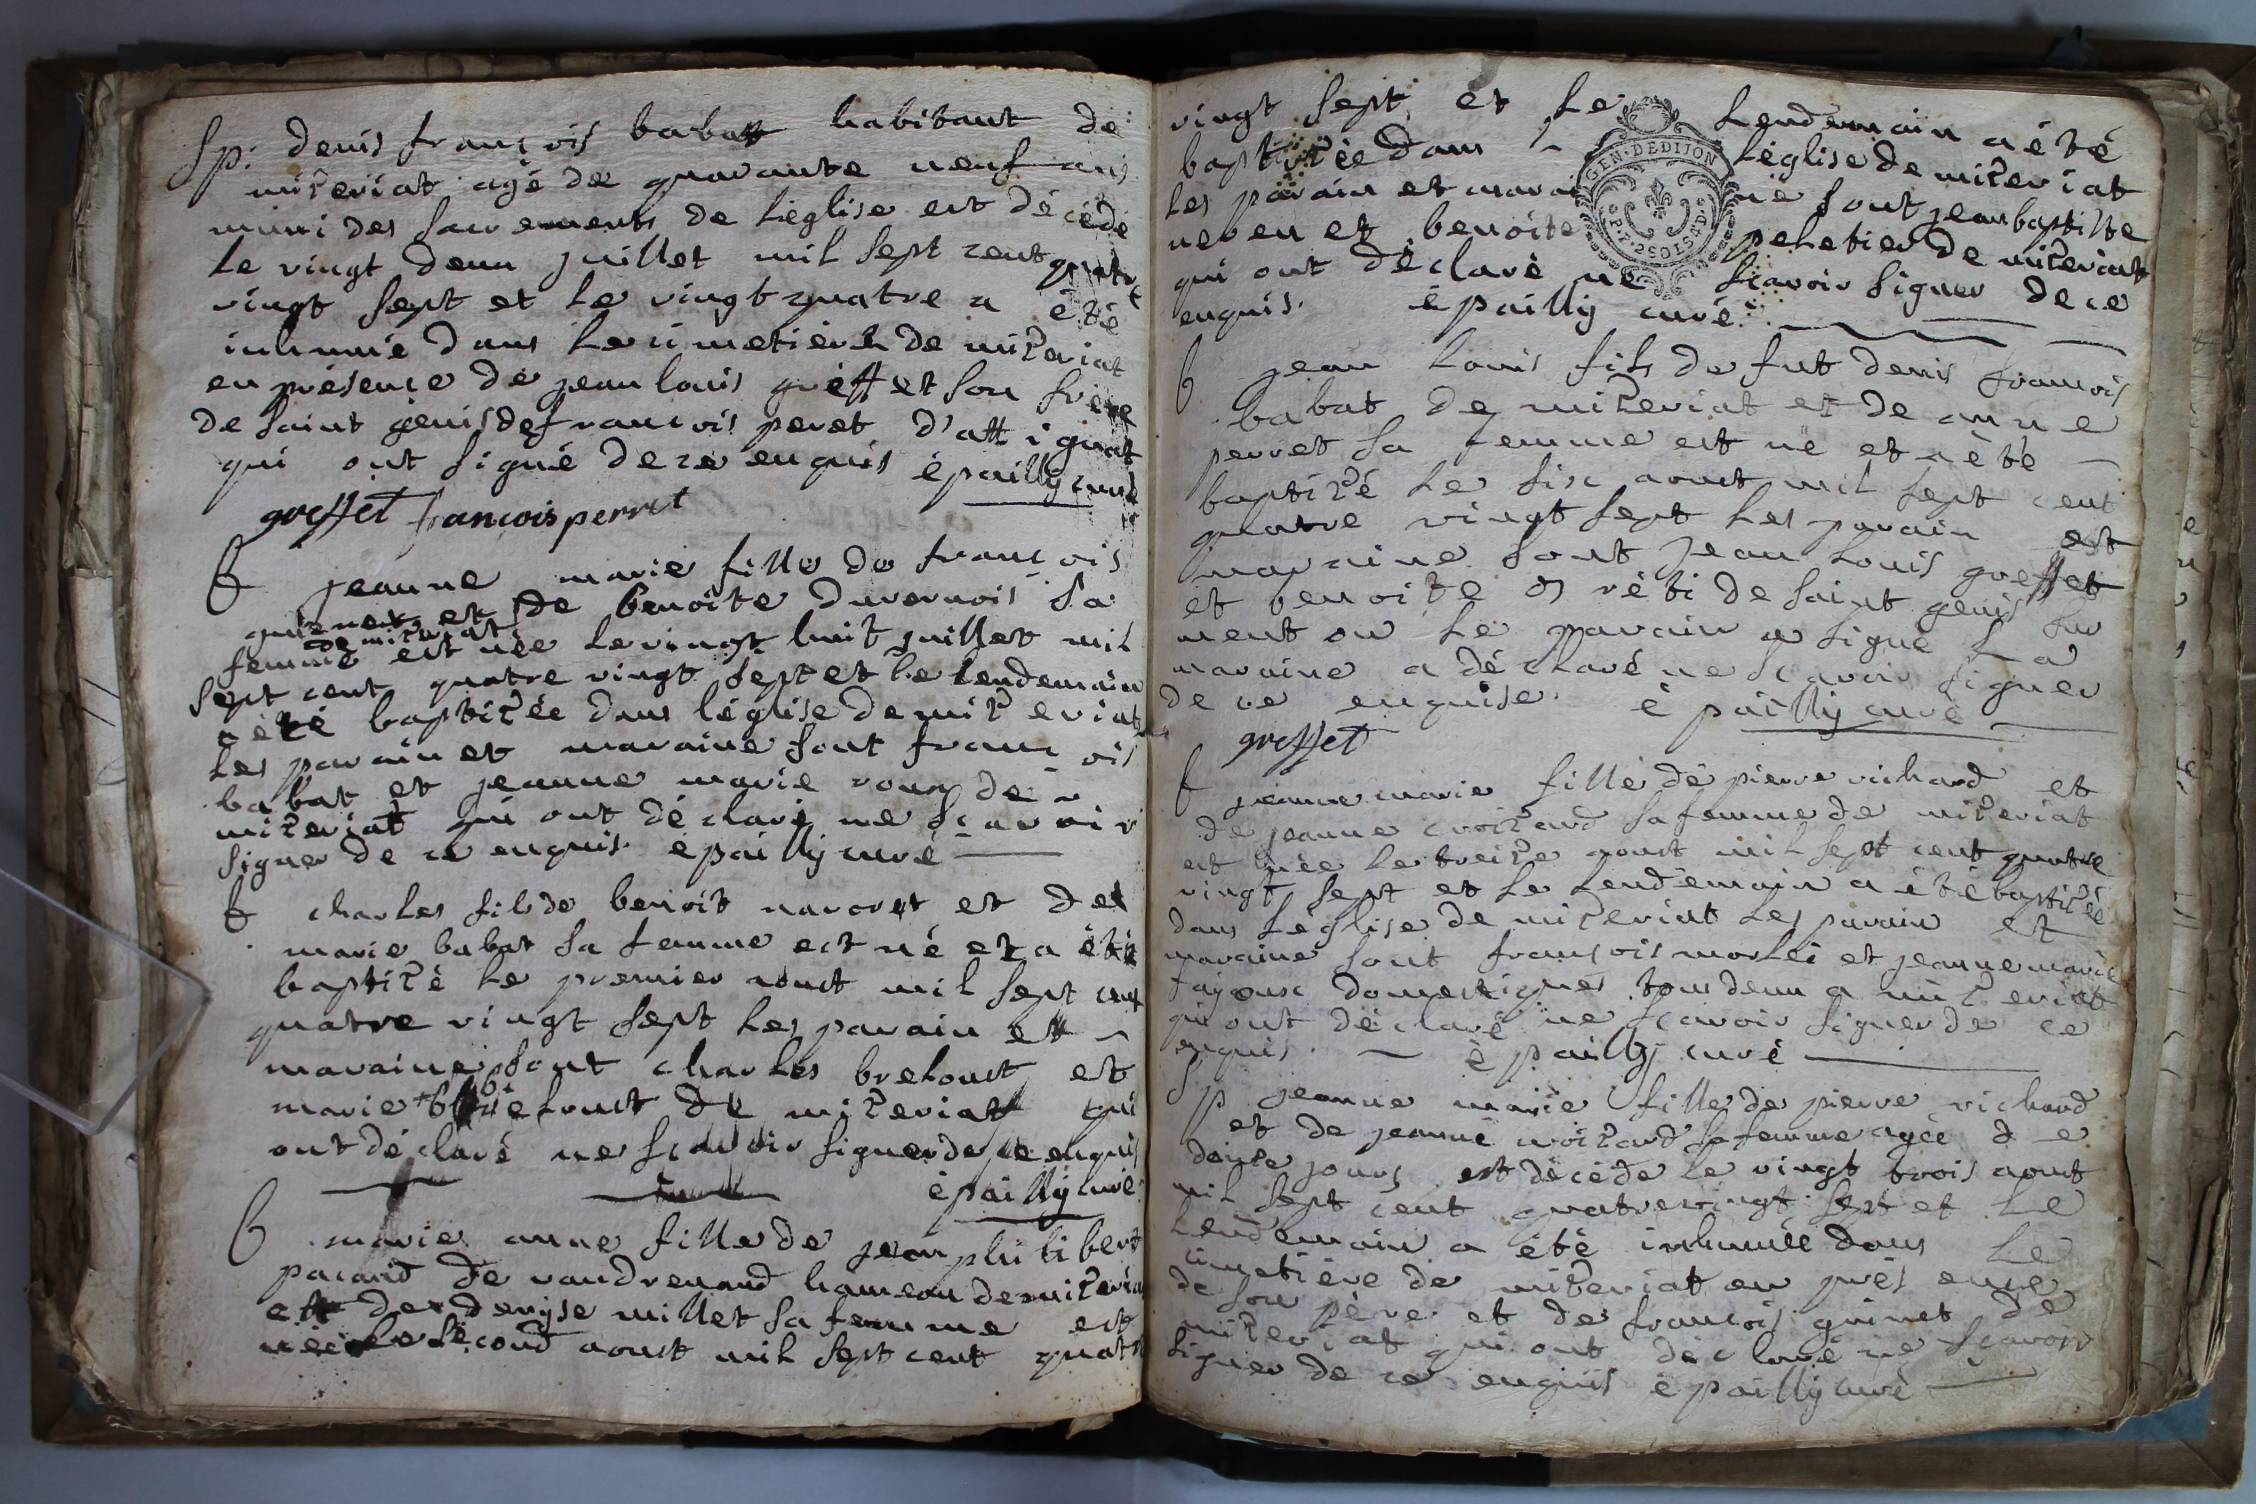 Sp. denis françois babatt habitant de
mizeriat agé de quarante neuf ans
muni des sacrements de l'eglise est décédé
le vingt deux juillet mil sept cent quatre
vingt sept et le vingt quatre a été
inhumé dans le cimetiere de mizeriat
en présence de jean louis greffet son frere
de saint genis de francois peret d'attignat
qui ont signé de ce enquis épailly curé
greffet francois perret
B jeanne marie fille de françois
guienet et de benoite duvernois sa
de mizeriat
femme est née le vingt huit juillet mil
sept cent quatre vingt sept et le lendemain
a été baptizée dans léglise de mizeriat
les parain et maraine sont françois
babat et jeanne marie roux de
mizeriat qui ont déclaré ne sçavoir
signer de ce enquis. épailly curé
B charles fils de benoit navoret et de
marie babat sa femme est né et a été
baptizé le premier aoust mil sept cent
quatre vingt sept les parain et
maraine sont charles breloust et
marie breloust de mizeriat qui
ont déclaré ne scavoir signer de ce enquis
épailly curé
B marie anne fille de jean philibert
pacard de vaudrenand hameau de mizeria
et de denyse millet sa femme est
née le second aoust mil sept cent quatre
vingt sept et le lendemain a été
GEN. DE DIJON
baptizée dans l'église de mizeriat
les parain et maraine sont jean baptiste
neveu et benoite peletier de mizeriat
qui ont déclaré ne scavoir signer de ce
enquis. épailly curé
B jean louis fils de fut denis francois
babat de mizeriat et de anne
perret sa femme est né et a été
baptizé le sixe aoust mil sept cent
quatre vingt sept les parain et
maraine sont jean louis greffet
et benoite de saint genis sur
ment on le parain a signé la
maraine a déclaré ne scavoir signer
de ce enquise. épailly curé
greffet
B jeanne marie fille de pierre richard et
de jeanne croizard sa femme de mizeriat
est née le treize aoust mil sept cent quatre
vingt sept et le lendemain a été baptizée
dans l'église de mizeriat les parain et
maraine sont françois morlei et jeanne marie
fajoux domestiques tous deux a mizeriat
qui ont déclaré ne scavoir signer de ce
enquis. épailly curé
Sp jeanne marie fille de pierre richard
et de jeanne croizard sa femme agée de
douze jours est décédé le vingt trois aoust
mil sept cent quatre vingt sept et le
lendemain a été inhumée dans le
cimetiére de mizeriat en présence
de son père et de francois guinet de
mizeriat qui ont déclaré ne sçavoir
signer de ce enquis épailly curé